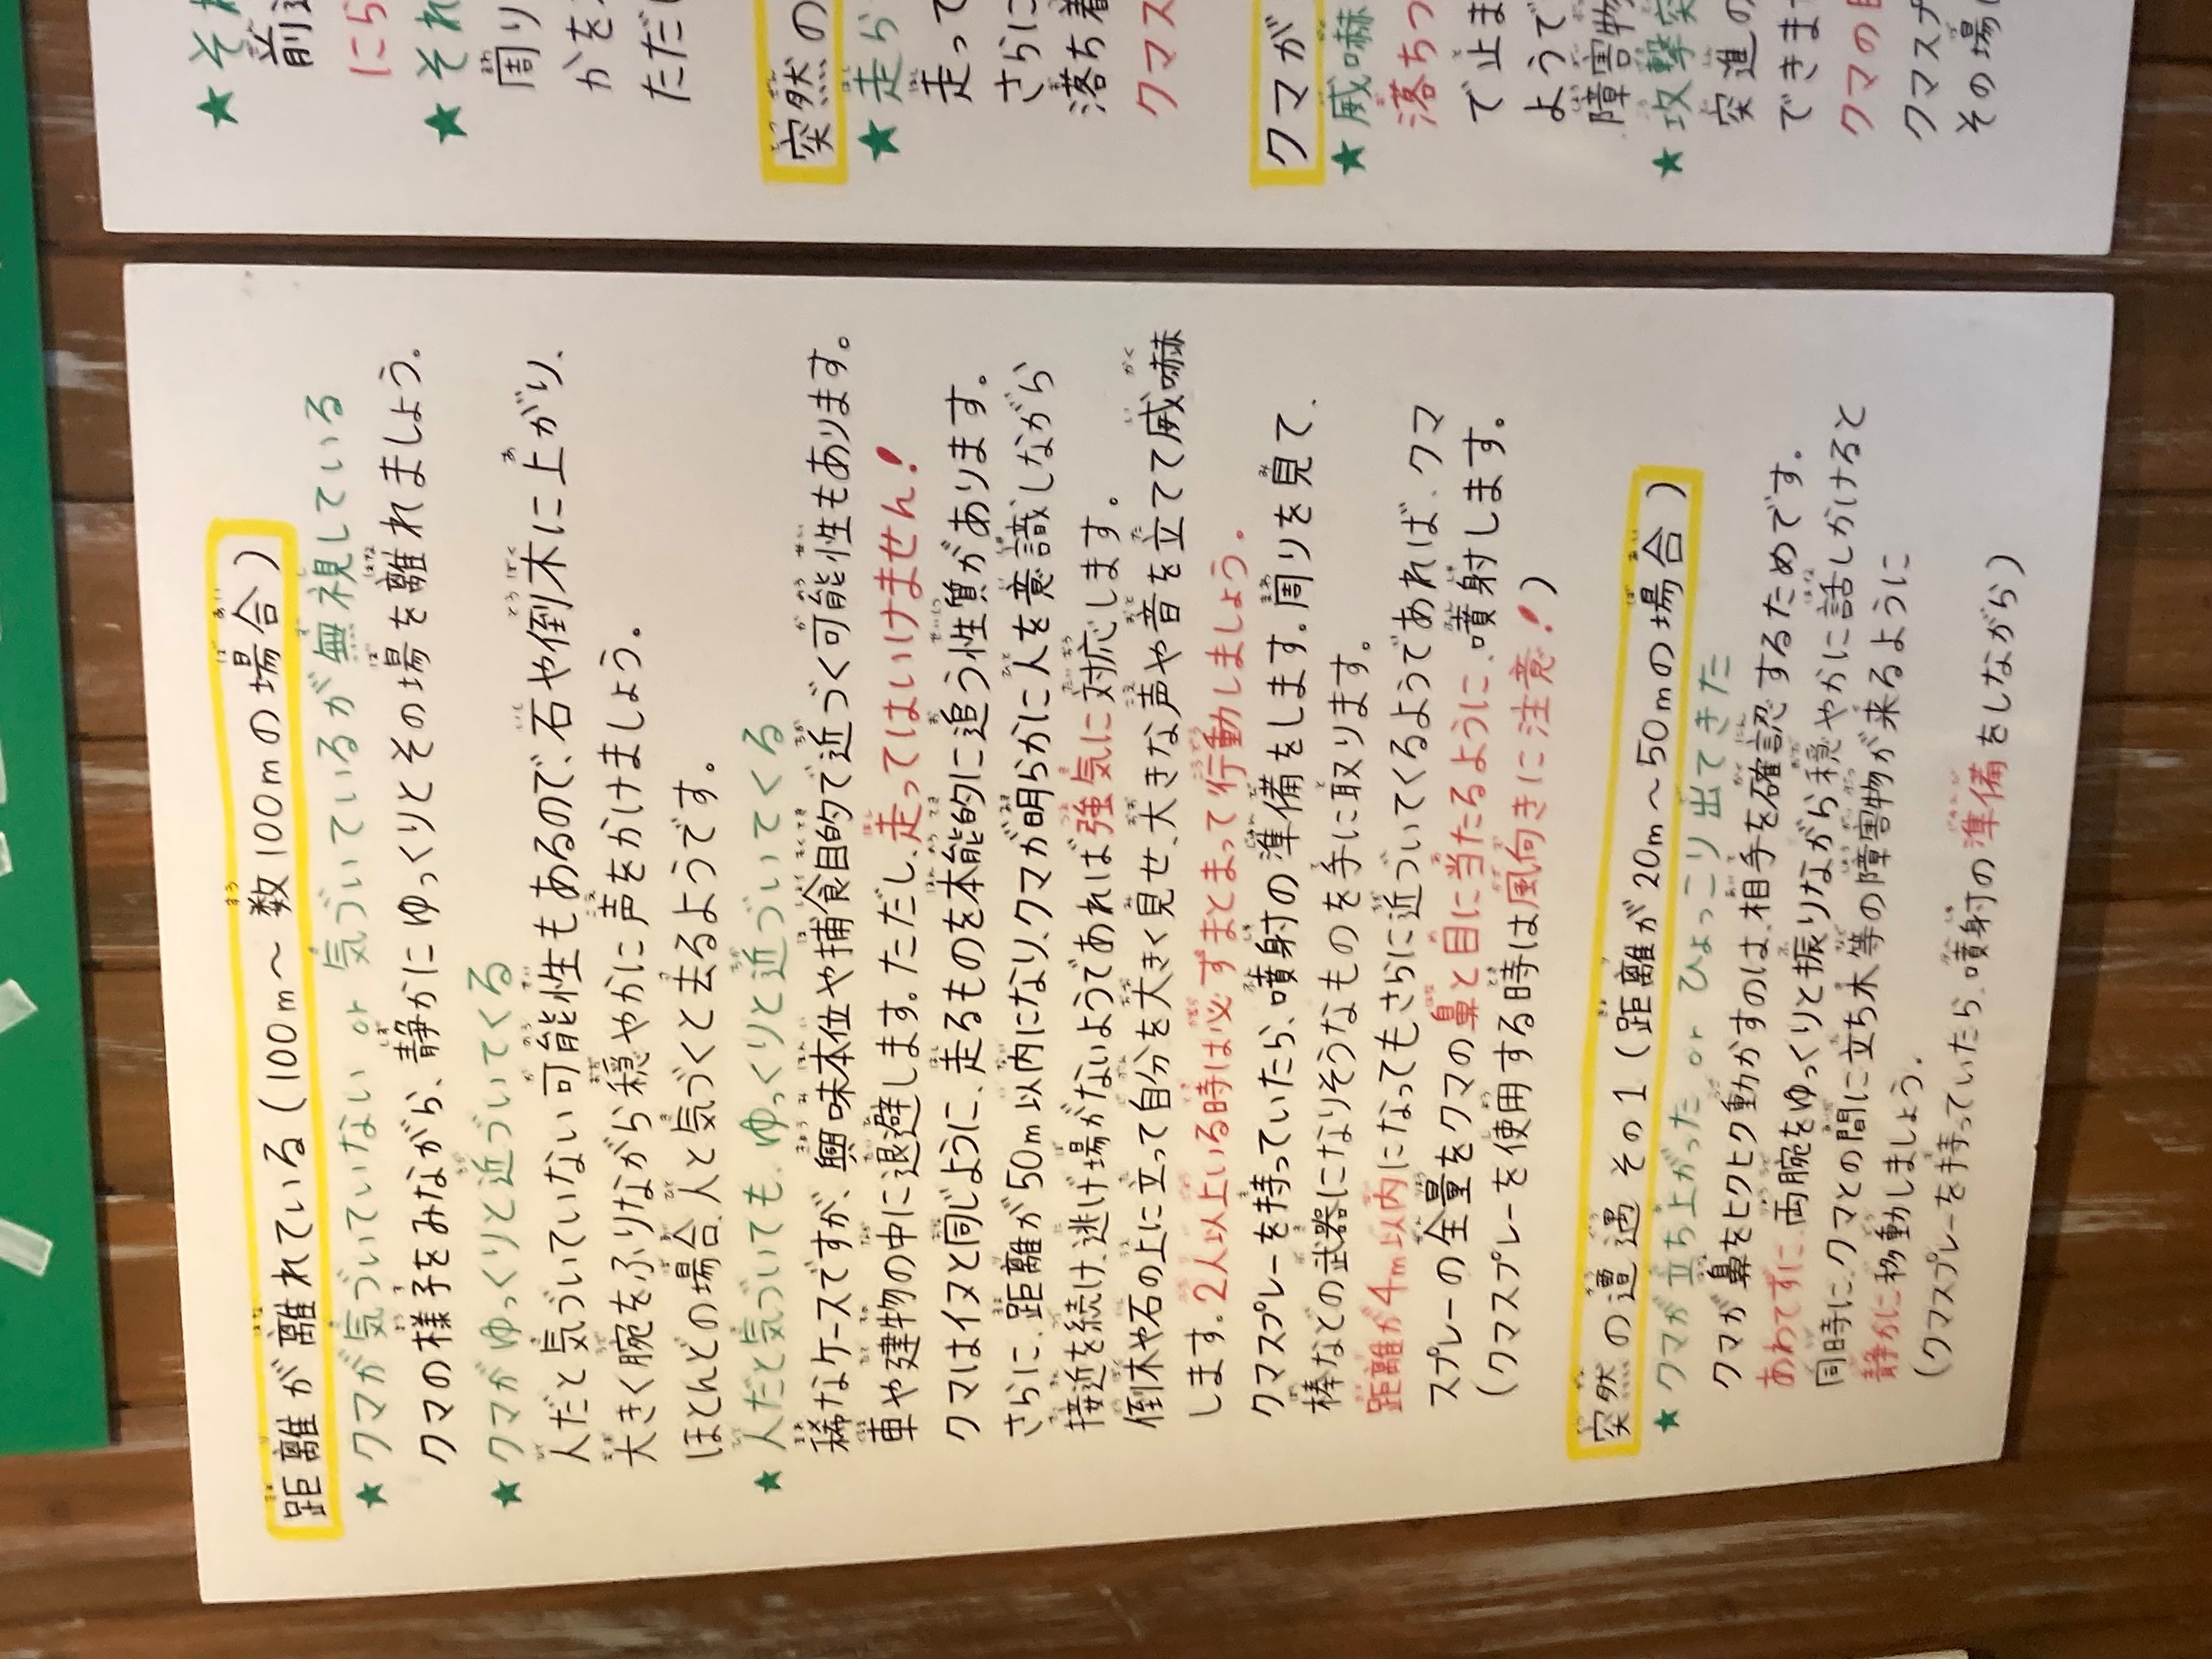 距離が離れている（100m～数100mの場合）
★クマが気づいていない or 気づいているが無視している
クマの様子をみながら、静かにゆっくりとその場を離れましょう。
★クマがゆっくりと近づいてくる
人だと気づいていない可能性もあるので、石や倒木に上がり、
大きく腕をふりながら穏やかに声をかけましょう。
ほとんどの場合、人と気づくと去るようです。
★人だと気づいても、ゆっくりと近づいてくる
稀なケースですが、興味本位や捕食目的で近づく可能性もあります。
車や建物の中に退避します。ただし、走ってはいけません！
クマはイヌと同じように、走るものを本能的に追う性質があります。
さらに、距離が50m以内になり、クマが明らかに人を意識しながら
接近を続け、逃げ場がないようであれば強気に対応します。
倒木や石の上に立って自分を大きく見せ、大きな声や音を立てて威嚇
します。2人以上いる時は必ずまとまって行動しましょう。
クマスプレーを持っていたら、噴射の準備をします。周りを見て、
棒などの武器になりそうなものを手に取ります。
距離が4m以内になってもさらに近づいてくるようであれば、クマ
スプレーの全量をクマの鼻と目に当たるように、噴射します。
（クマスプレーを使用する時は風向きに注意！）
突然の遭遇 その1（距離が20m～50mの場合）
★クマが立ち上がった or ひょっこり出てきた
クマが鼻をヒクヒク動かすのは、相手を確認するためです。
あわてずに、両腕をゆっくりと振りながら穏やかに話しかけると
同時に、クマとの間に立ち木等の障害物が来るように
静かに移動しましょう。
（クマスプレーを持っていたら、噴射の準備をしながら）
★そ
前
にら
★それ
周り
かを
ただし
突然の
★走ら
走って
さらに
落ち着
クマス
クマが
★威嚇
落ちつ
で止ま
ようで
障害物
★攻撃突
突進の
できま
クマの
クマスプ
その場